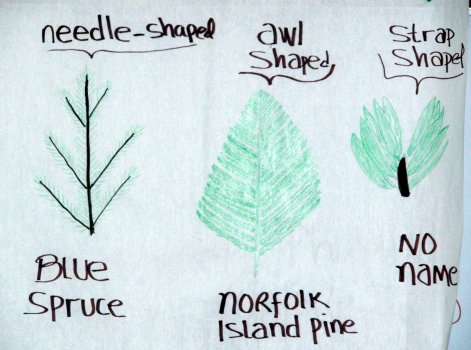 needle-shaped
awl
shaped
strap
shaped
Blue
Spruce
Norfolk
Island pine
No
name